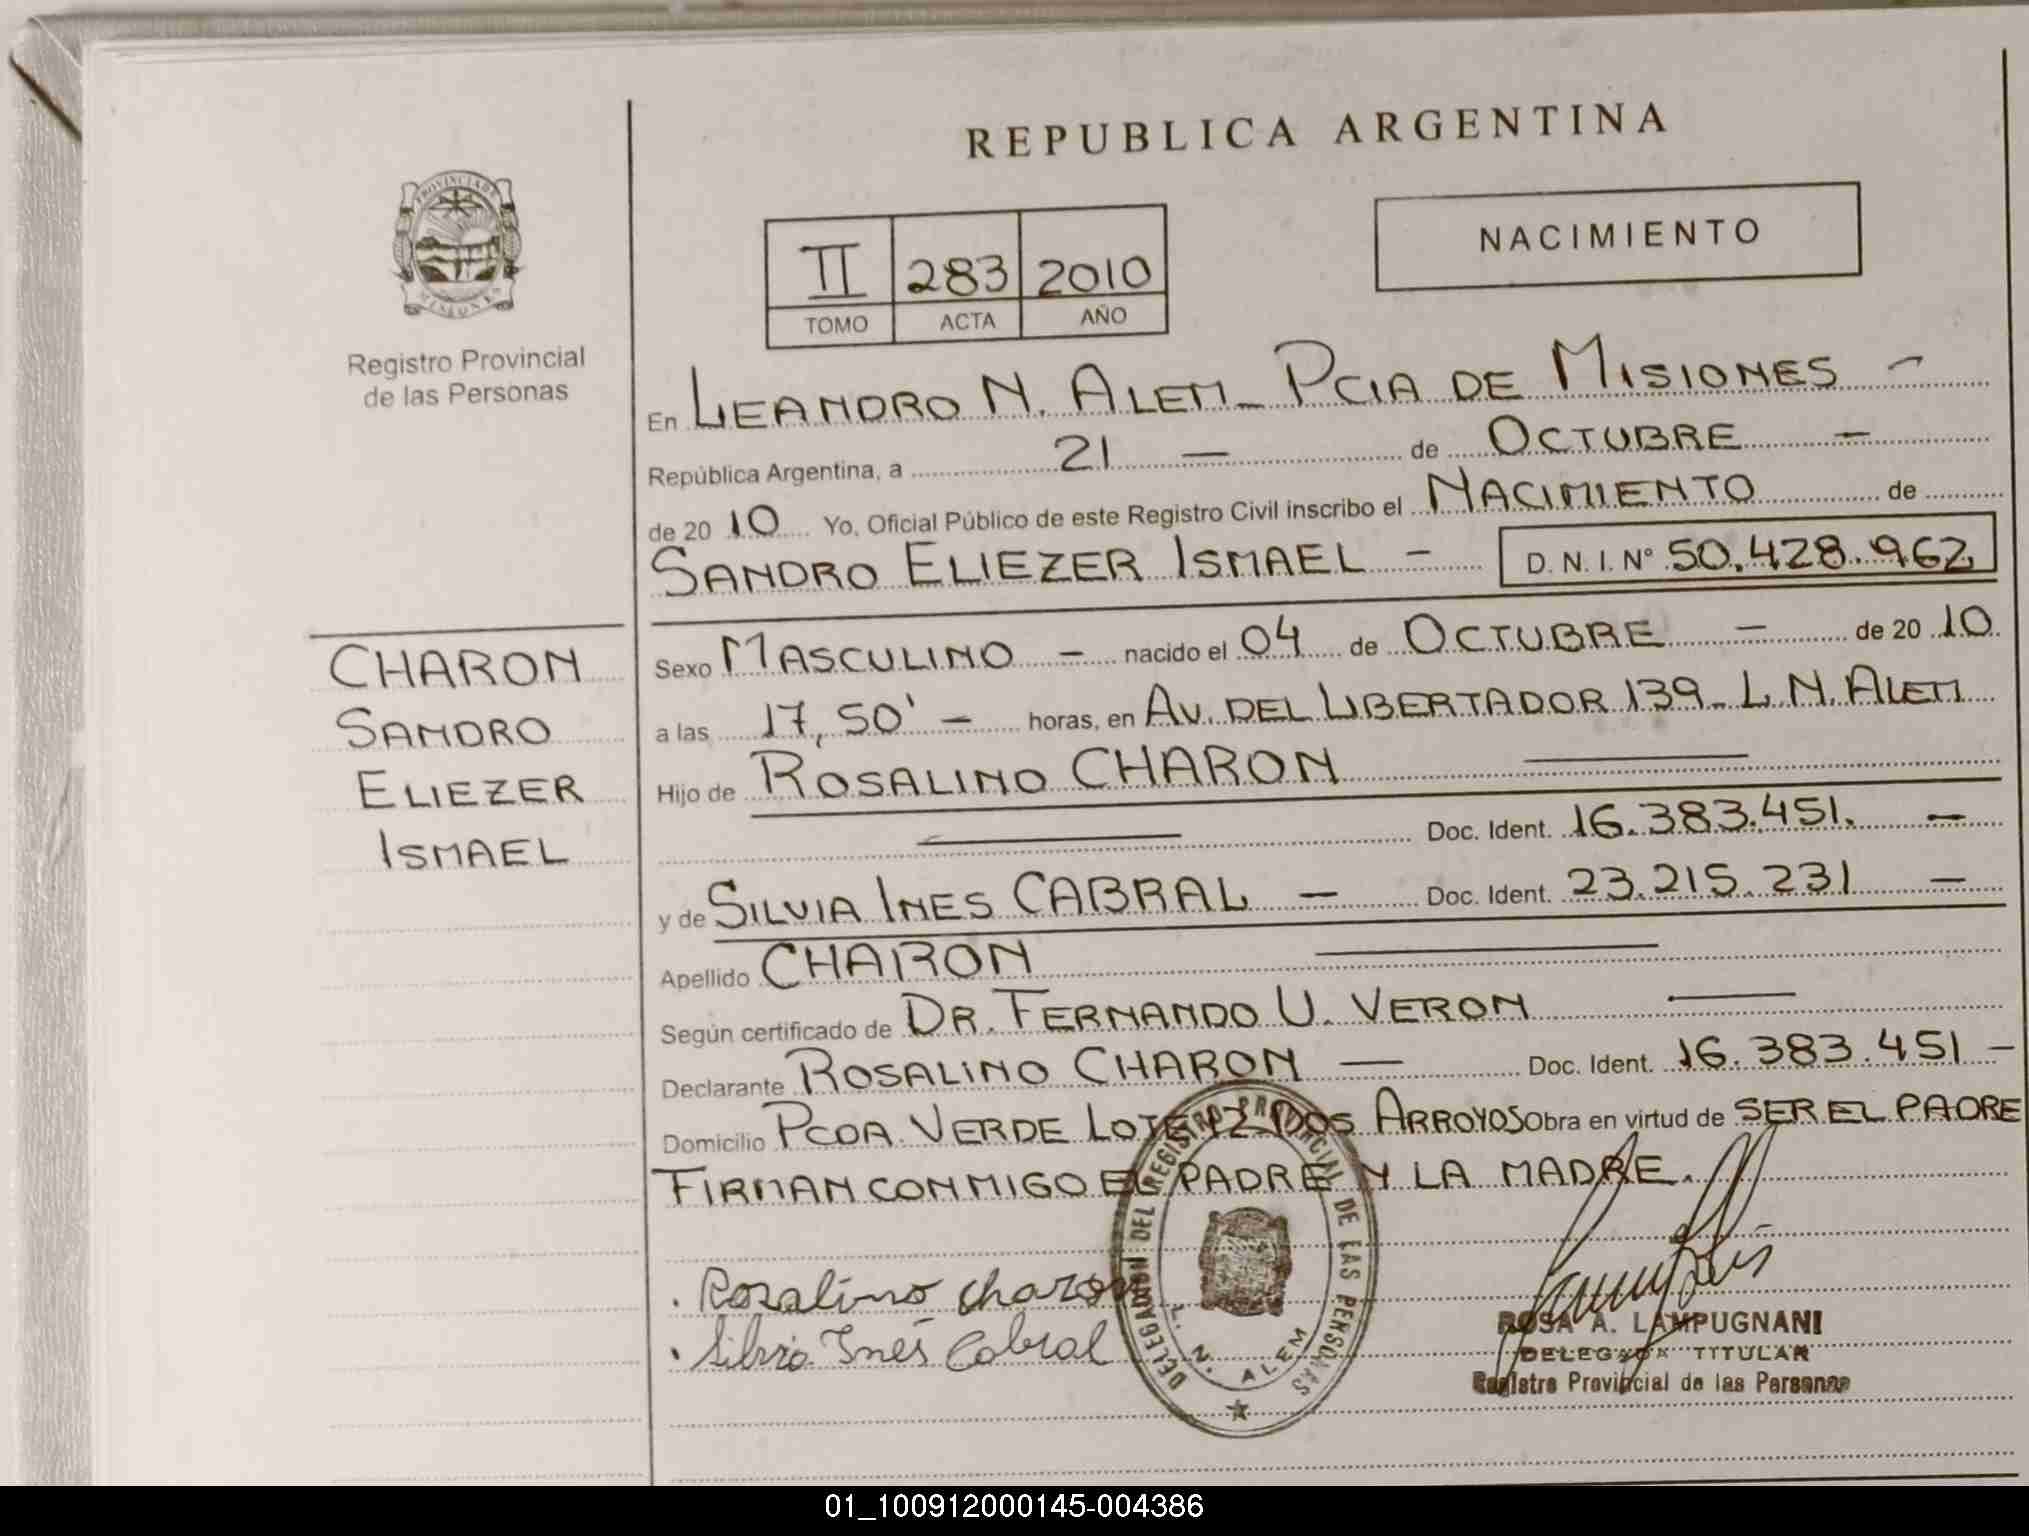 REPUBLICA ARGENTINA
PROVINCIA DE
MISIONES
Registro Provincial
de las Personas
II 283 2010
TOMO ACTA AÑO
NACIMIENTO
En LEANDRO N. ALEM_ PCIA DE MISIONES -
República Argentina, a 21 — de OCTUBRE —
de 20 10 Yo, Oficial Público de este Registro Civil inscribo el NACIMIENTO de
SANDRO ELIEZER ISMAEL - D. N. I. Nº 50.428.962
CHARON
SANDRO
ELIEZER
ISMAEL
Sexo MASCULINO - nacido el 04 de OCTUBRE — de 20 10
a las 17,50' — horas, en AV. DEL LIBERTADOR 139_ L.N. ALEM
Hijo de ROSALINO CHARON ——
—— Doc. Ident. 16.383.451. —
y de SILVIA INES CABRAL — Doc. Ident. 23.215.231 —
Apellido CHARON ——
Según certificado de DR. FERNANDO U. VERON ——
Declarante ROSALINO CHARON — Doc. Ident. 16.383.451 -
Domicilio PCDA. VERDE LOTE 12 DOS ARROYOS Obra en virtud de SER EL PADRE
FIRMAN CONMIGO EL PADRE Y LA MADRE.
. Rosalino charon
. Silvia Inés Cabral
DELEGACION DEL REGISTRO PROVINCIAL DE LAS PERSONAS
L. N. ALEM
ROSA A. LAMPUGNANI
DELEGADA TITULAR
Registro Provincial de las Personas
01_100912000145-004386